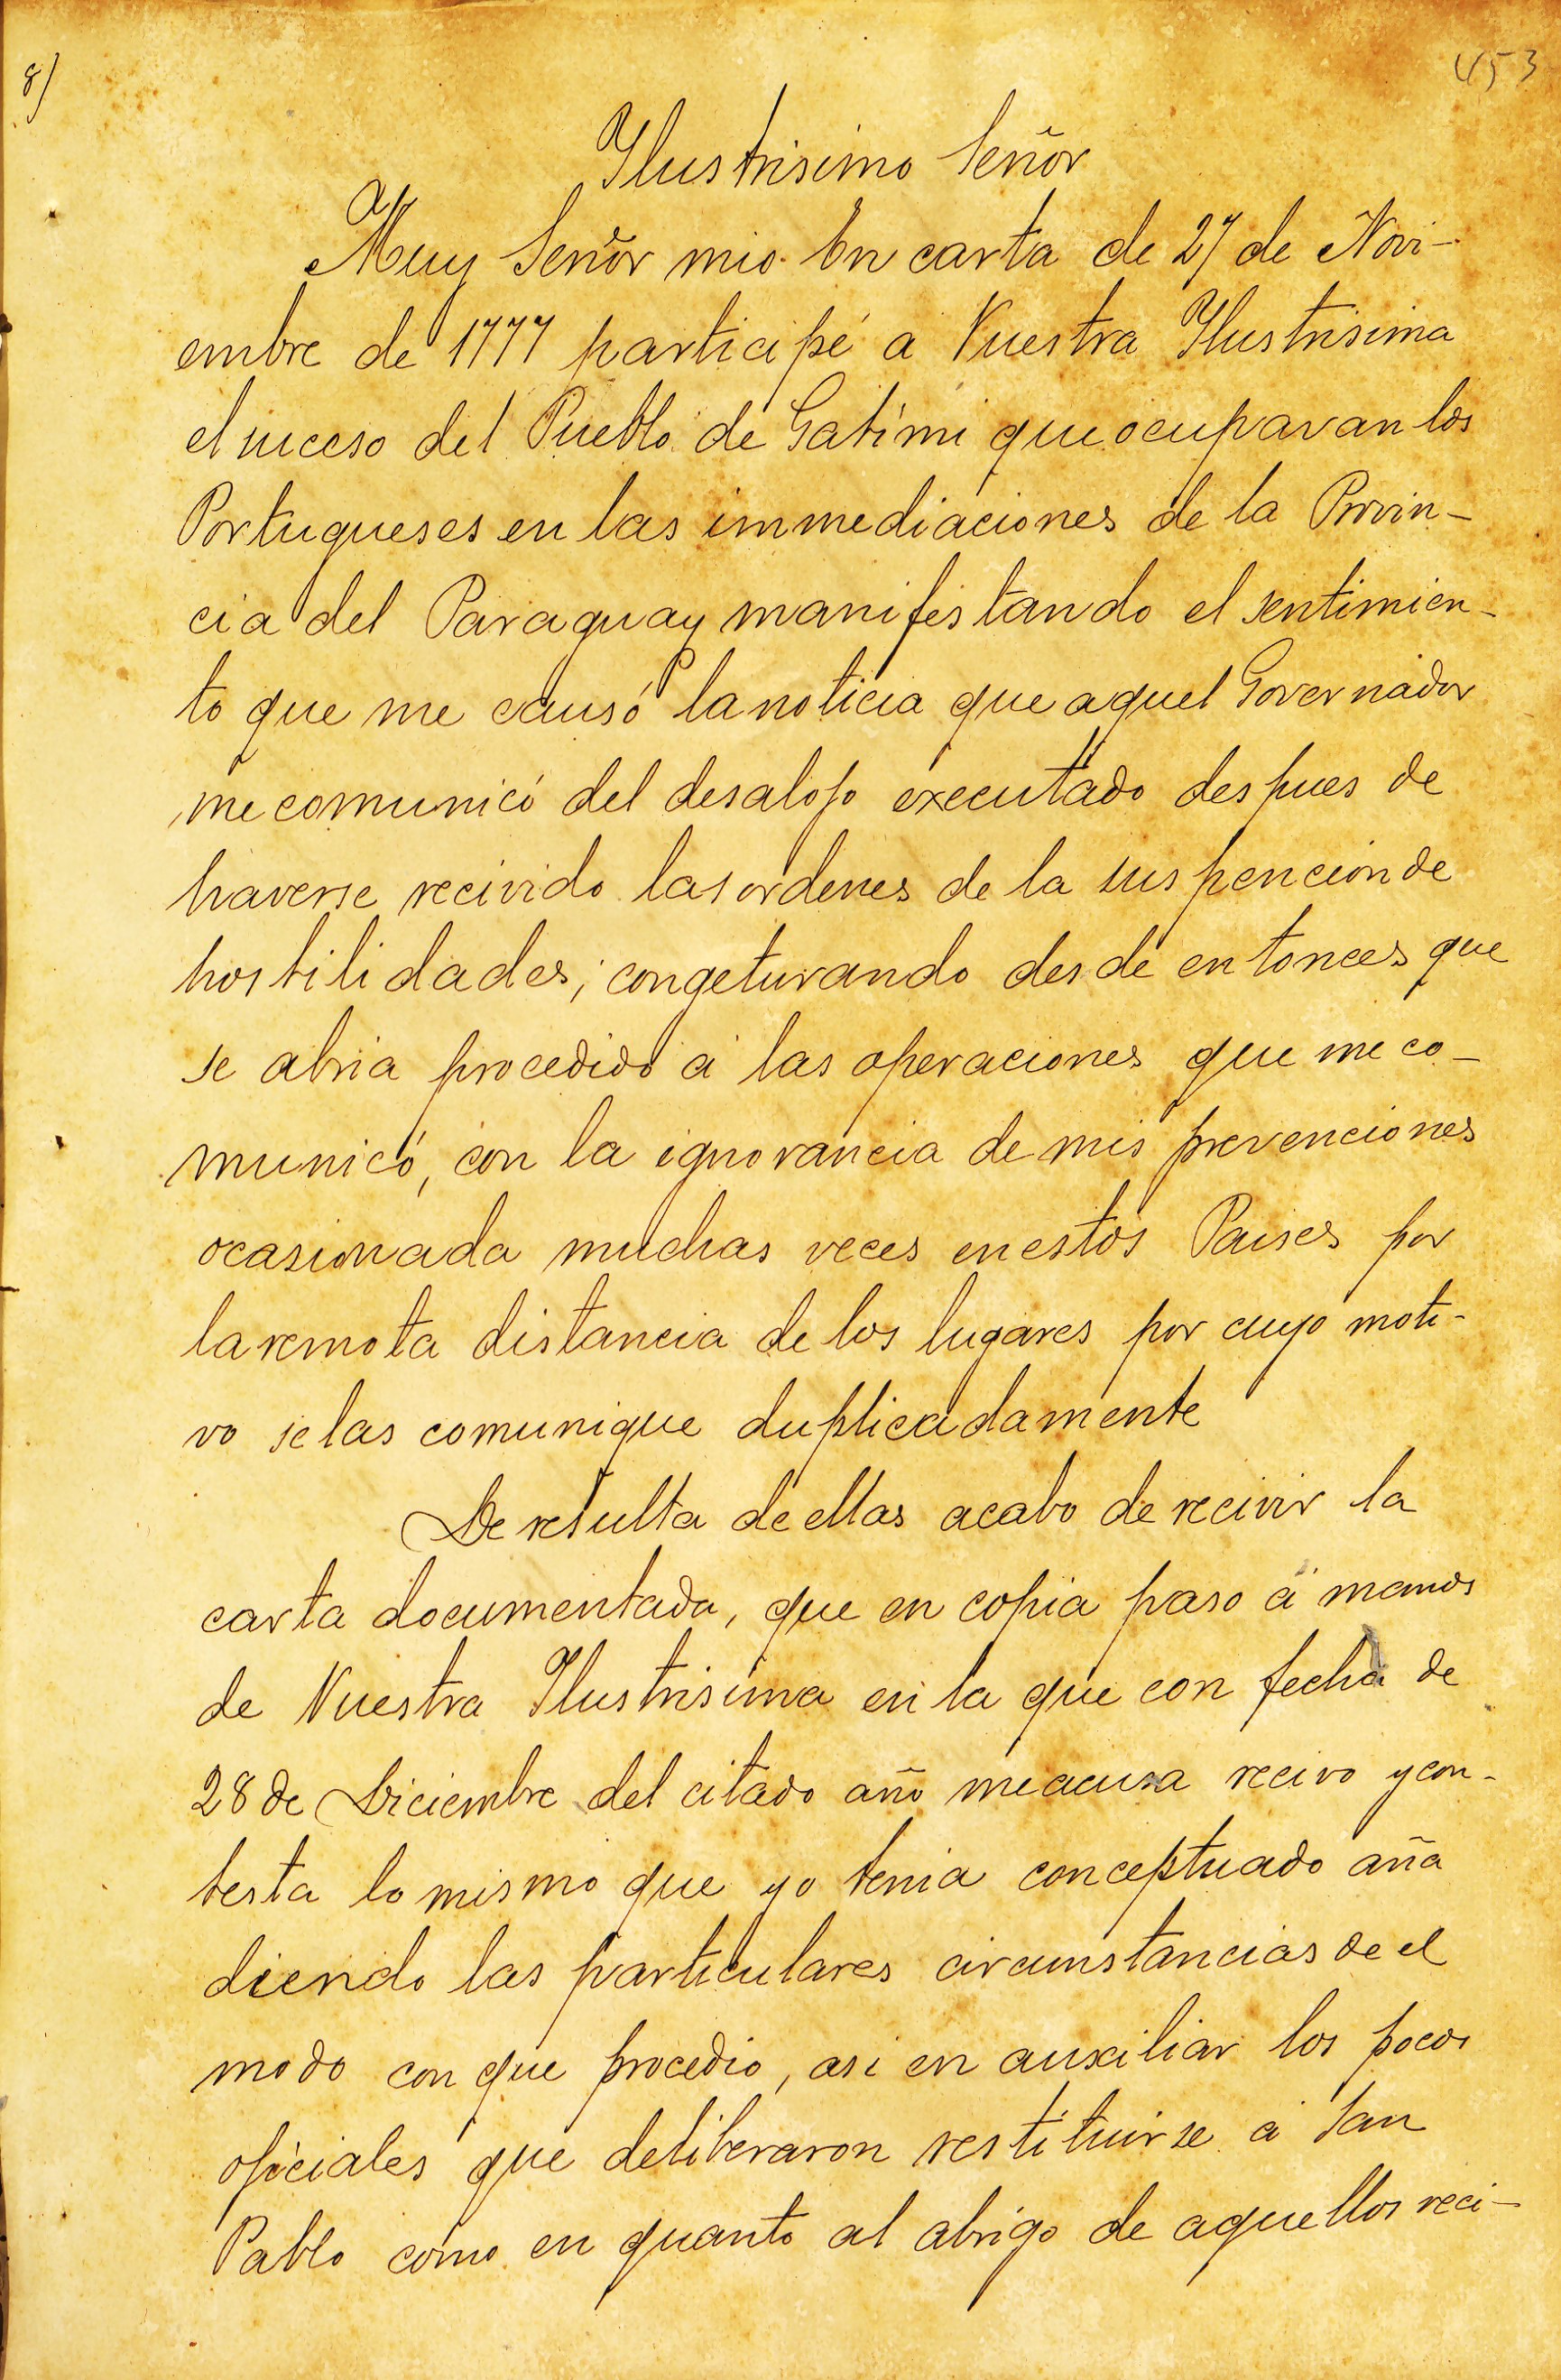 8)
453
Ylustrisimo Señor
Muy Señor mio. En carta de 27 de Novi-
embre de 1777 participé a Vuestra Ylustrisima
el suceso del Pueblo de Gatimi que ocupavan los
Portugueses en las immediaciones de la Provin-
cia del Paraguay manifestando el sentimien-
to que me causó la noticia que aquel Governador
me comunicó del desalojo executado despues de
haverse recivido las ordenes de la suspencion de
hostilidades; congeturando desde entonces que
se abria procedido a las operaciones que me co-
municó, con la ignorancia de mis prevenciones
ocasionada muchas veces en estos Paises por
la remota distancia de los lugares por cuyo moti-
vo se las comunique duplicadamente
De resulta de ellas acabo de recivir la
carta documentada, que en copia paso á manos
de Vuestra Ylustrisima en la que con fecha de
28 de Diciembre del citado año me acusa recivo y con-
testa lo mismo que yo tenia conceptuado aña
diendo las particulares circunstancias de el
modo con que procedio, asi en auxiliar los pocos
oficiales que deliberaron restituirse a San
Pablo como en quanto al abrigo de aquellos reci-